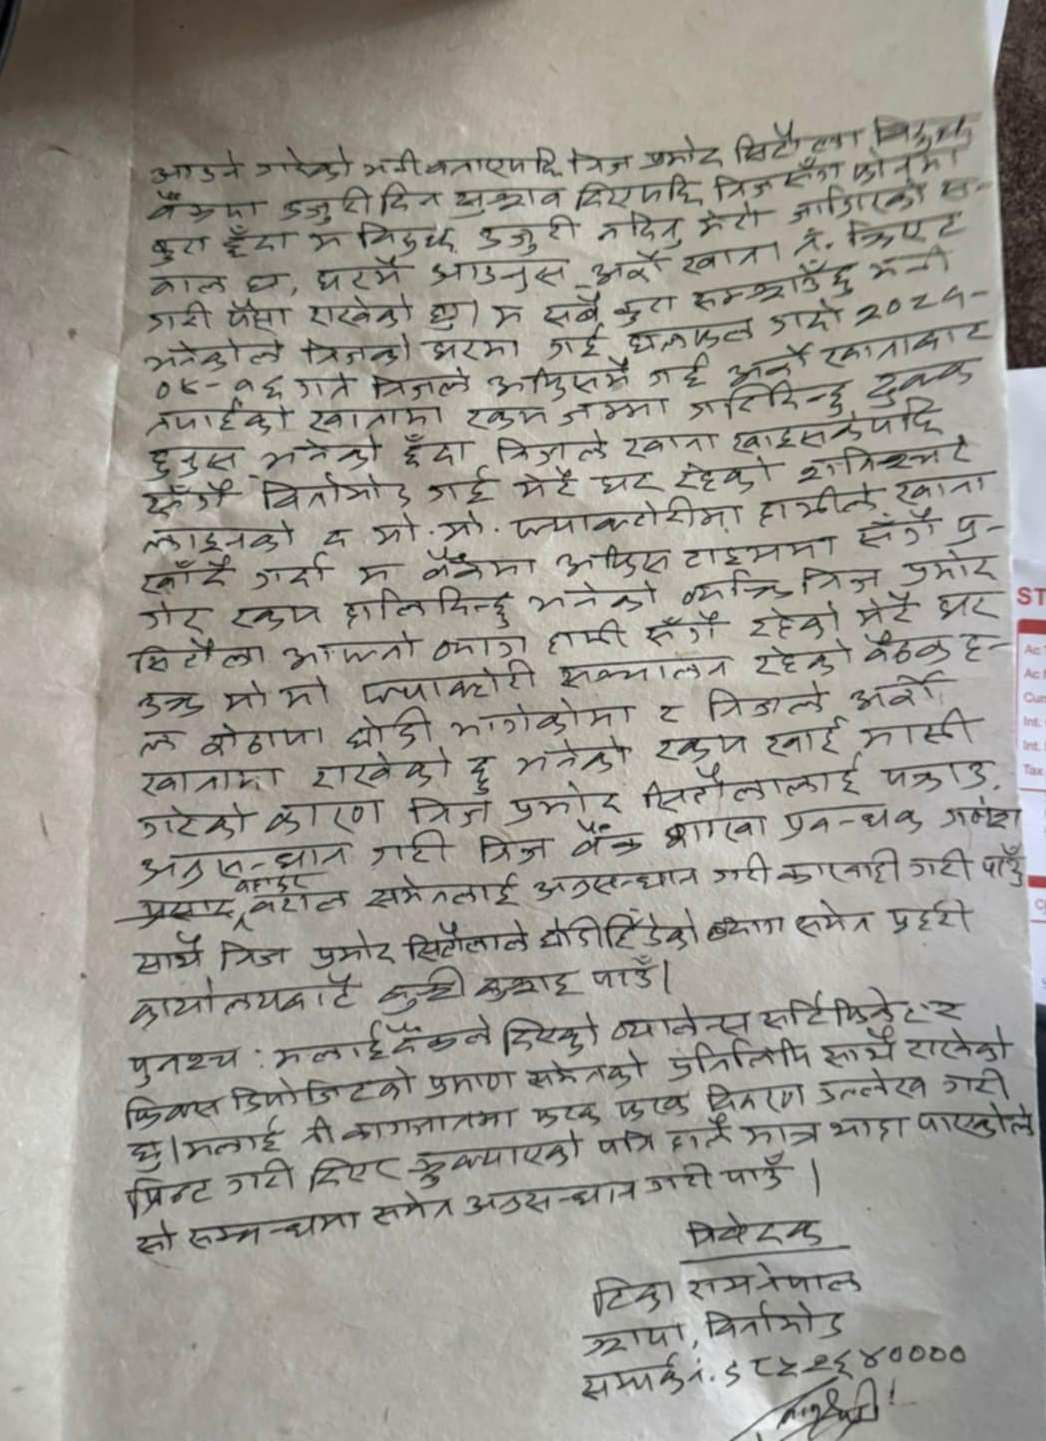 आउने गरेको भनी बताएपछि निज प्रमोद सिटौला विरुद्ध
बैँकमा उजुरी दिन सुझाव दिएपछि निज सँग फोनमा
कुरा हुँदा म विरुद्ध उजुरी नदिनु मेरो जागिरको स-
वाल छ, घरमै आउनुस अर्को खाता नं. क्रिएट
गरी पैसा राखेको छु। म सबै कुरा सम्झाउँछु भनी
भनेकोले निजको घरमा गई छलफल गर्दा २०८१-
०४-१६ गते निजले अफिसमै गई अर्को खाताबाट
तपाईको खातामा रकम जम्मा गरिदिन्छु ढुक्क
हुनुस भनेको हुँदा निजले खाना खाइसकेपछि
सँगै बिर्तामोड गई मेरै घर रहेको शनिश्चरे
लाइनको द मो.मो. फ्याक्टोरीमा हामीले खाना
खाँदै गर्दा म बैँकमा अफिस टाइममा सँगै पु-
गेर रकम हालिदिन्छु भनेको व्यक्ति निज प्रमोद
सिटौला आफ्नो ब्याग हामी सँगै रहेको मेरै घर
उक्त मो मो फ्याक्टोरी सञ्चालन रहेको बैठक ह-
ल कोठामा छोडी भागेकोमा र निजले अर्को
खातामा राखेको छु भनेको रकम खाई मासी
गरेको कारण निज प्रमोद सिटौलालाई पक्राउ,
अनुसन्धान गरी निज बैँक शाखा प्रबन्धक गणेश
बहादुर
प्रसाद बराल समेतलाई अनुसन्धान गरी कारवाही गरी पाउँ
साथै निज प्रमोद सिटौलाले छोडीहिँडेको ब्याग समेत प्रहरी
कार्यालयबाटै बुझी बुझाइ पाउँ।
पुनश्च : मलाई बैँकले दिएको ब्यालेन्स सर्टिफिकेट र
फिक्स डिपोजिटको प्रमाण समेतको प्रतिलिपि साथै राखेको
छु। मलाई ती कागजातमा फरक फरक विवरण उल्लेख गरी
प्रिन्ट गरी दिएर झुक्याएको पनि हालै मात्र थाहा पाएकोले
सो सम्बन्धमा समेत अनुसन्धान गरी पाउँ ।
निवेदक
टिका राम नेपाल
झापा, बिर्तामोड
सम्पर्क नं.
ST
Ac
Ac
Cur
Int.
Int.
Tax